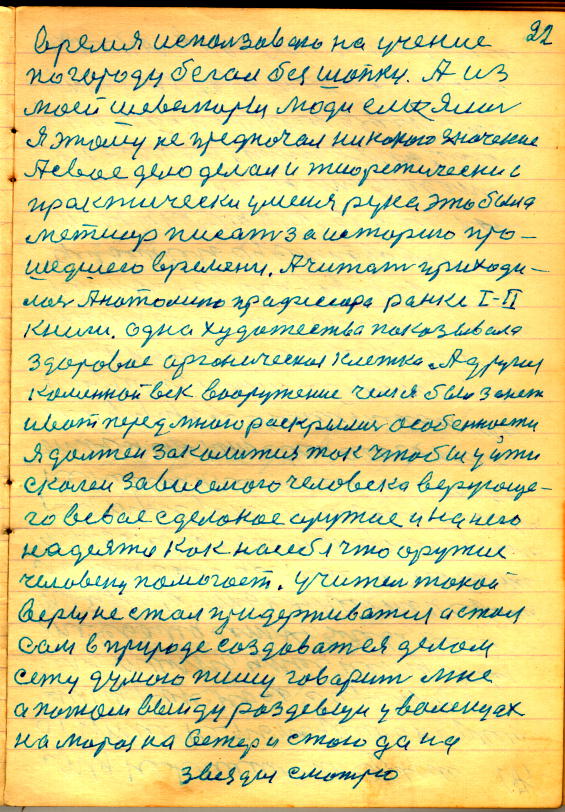 22
время использовато на учение
по городу бегал без шапки. А из
моей шевелюры люди смеялис
я этому не предпочал никокого значение
А свое дело делал и тиоретически с
практически умення рука это была
метиор писат за историю про-
шедшего времени. А читат приходи-
лоя Анатомию прафесора ранке I-II
книги. одна художества паказывала
здоровае органическая клетка. А другия
каменной век вооружение чем я был занет
и вот перед мною раскрылися особенности
я должен заколится так чтобы уйти
с колеи зависемого человека верующе-
го в евае сделоное оружие и на него
надеятся как на себя что оружие
человеку помогает. Учител такой
веры не стал придерживатся а стал
сам в природе создоватся делом
сежу думою пишу говарит мне
а потом выйду раздевши у валенцах
на мароз на ветер и стою да на
звезды смотрю